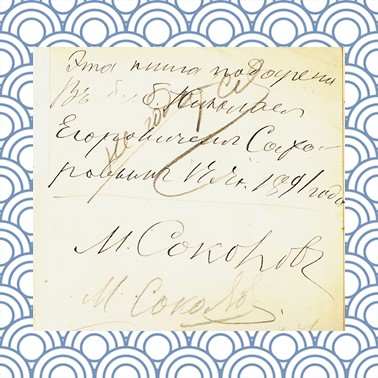 Эта книга подарена
Въ б. Николаем
Егоровичем Сахо-
ровым 1891 года
М. Сокоровъ
М. Соколов